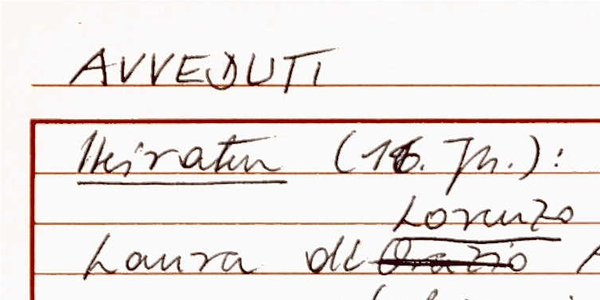 AVVEDUTI
Heiraten (16. Jh.):
Lorenzo
Laura di Orazio A